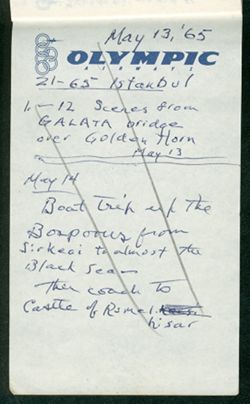 May 13, '65
OLYMPIC
21-65 Istanbul
1-12 Scenes from
GALATA bridge
over Golden Horn
May 13
May 14
Boat trip up the
Bosporus from
Sirkeci to almost the
Black Sea
then coach to
Castle of Rumel
hisar